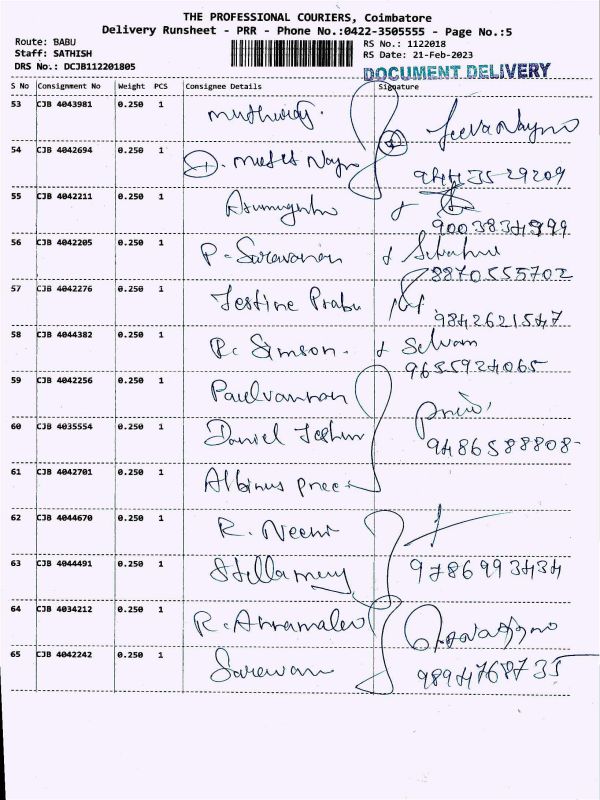 THE PROFESSIONAL COURIERS, Coimbatore
Delivery Runsheet - PRR - Phone No.:0422-3505555 - Page No.:5
Route: BABU
Staff: SATHISH
DRS No.: DCJB112201805
RS No.: 1122018
RS Date: 21-Feb-2023
DOCUMENT DELIVERY
S No Consignment No Weight PCS Consignee Details Signature
53 CJB 4043981 0.250 1 Muthuraj.
54 CJB 4042694 0.250 1
94435-29209
55 CJB 4042211 0.250 1
56 CJB 4042205 0.250 1 P. Saravanan
8870555702
57 CJB 4042276 0.250 1 Jestine Prabu
9842621547
58 CJB 4044382 0.250 1 R. Simson. Selvam
9655924065
59 CJB 4042256 0.250 1 Paulvannan
60 CJB 4035554 0.250 1 Daniel
9486588808-
61 CJB 4042701 0.250 1 Albinus
62 CJB 4044670 0.250 1 R.
63 CJB 4044491 0.250 1 Stellamery
9786993434
64 CJB 4034212 0.250 1 R. Annamalai
65 CJB 4042242 0.250 1 Saravanan
9894768735